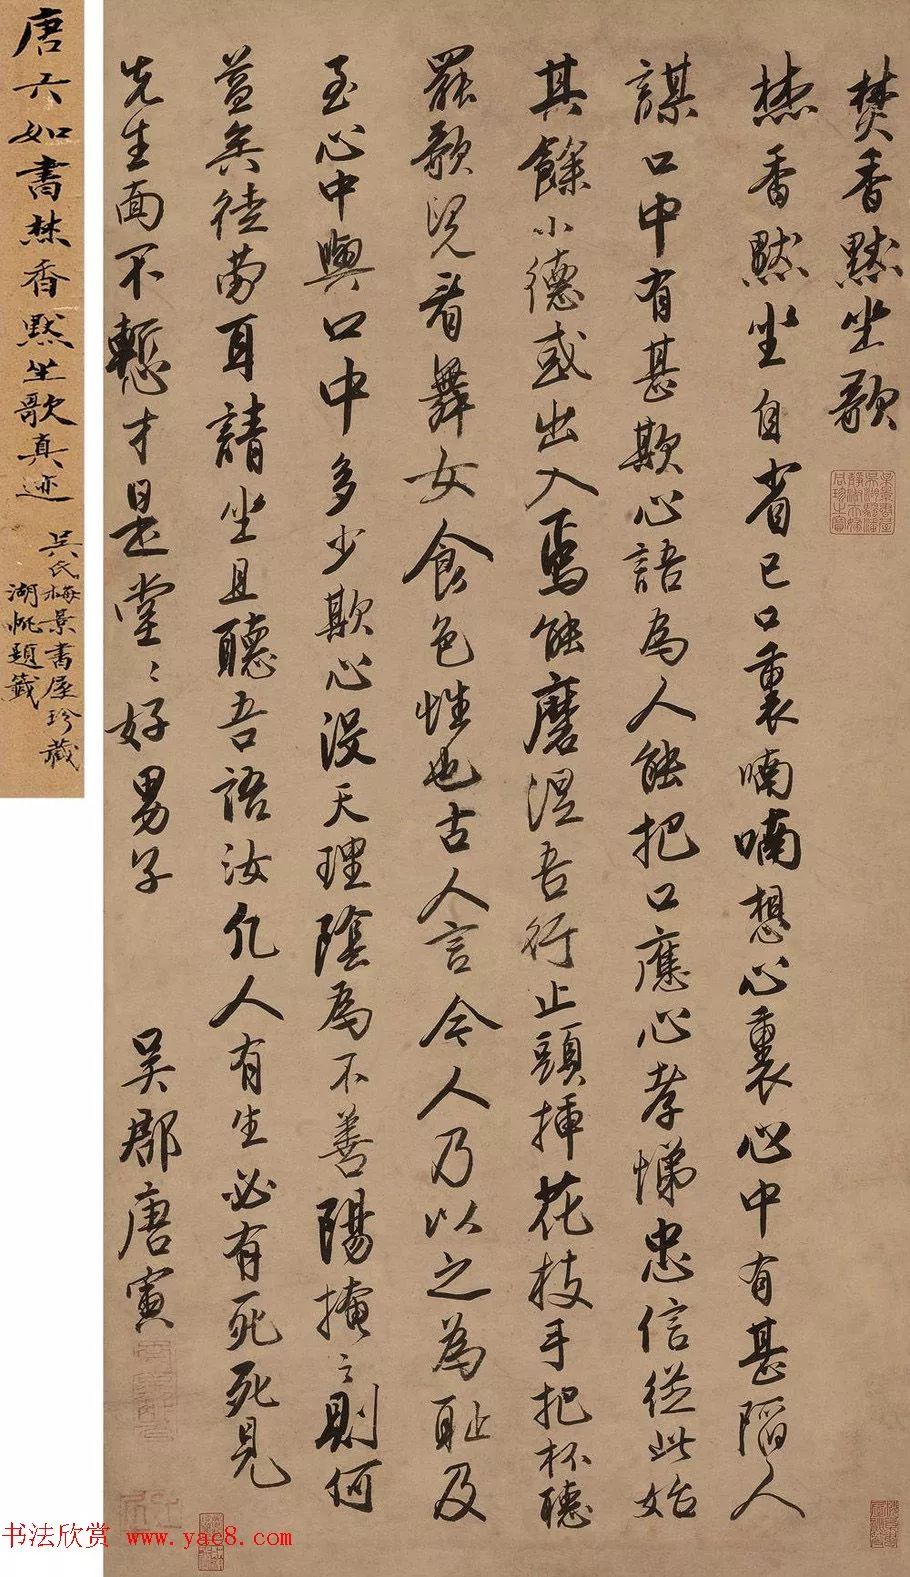 焚香默坐歌
焚香默坐自省己口裏喃喃想心裏心中有甚陷人
謀口中有甚欺心語為人能把口應心孝悌忠信從此始
其餘小德或出入焉能磨涅吾行止頭插花枝手把杯聽
罷歌兒看舞女食色性也古人言今人乃以之為恥及
至心中與口中多少欺心沒天理陰為不善陽掩之則何
益矣徒勞耳請坐且聽吾語汝凡人有生必有死死見
先生面不慙才是堂〻好男子 吳郡唐寅
唐六如書焚香默坐歌真迹
吳氏梅景書屋珍藏
湖帆題籤
书法欣赏 www.yac8.com